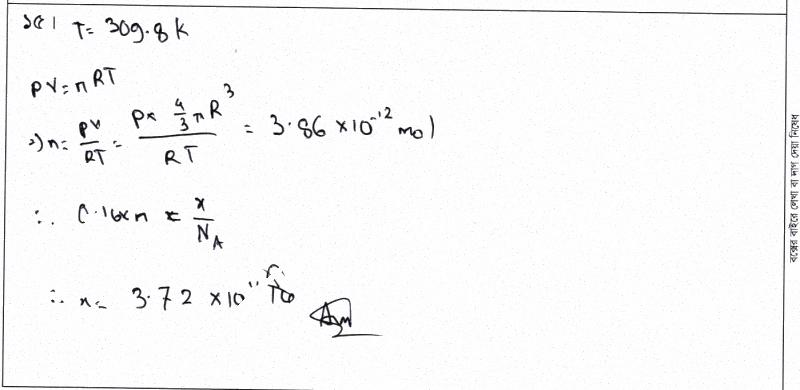 ১৫। T = 309.8 K
PV = nRT
⇒ n = PV/RT = (P × 4/3 πR³)/RT = 3.86 × 10⁻¹² mol
∴ 0.16 × n = x/N_A
∴ x = 3.72 × 10¹¹ টি
Ans
বক্সের বাইরে লেখা বা দাগ দেয়া নিষেধ